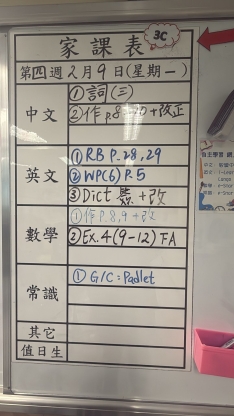 家課表 3C
第四週2月9日(星期一)
中文
①詞(三)
②作 P.8 10+改正
英文
①RB P.28,29
②WP(6) P.5
③Dict +改
數學
①作P.8,9+改
②Ex.4(9-12)下A
常識
①G/C:Padlet
其它
值日生